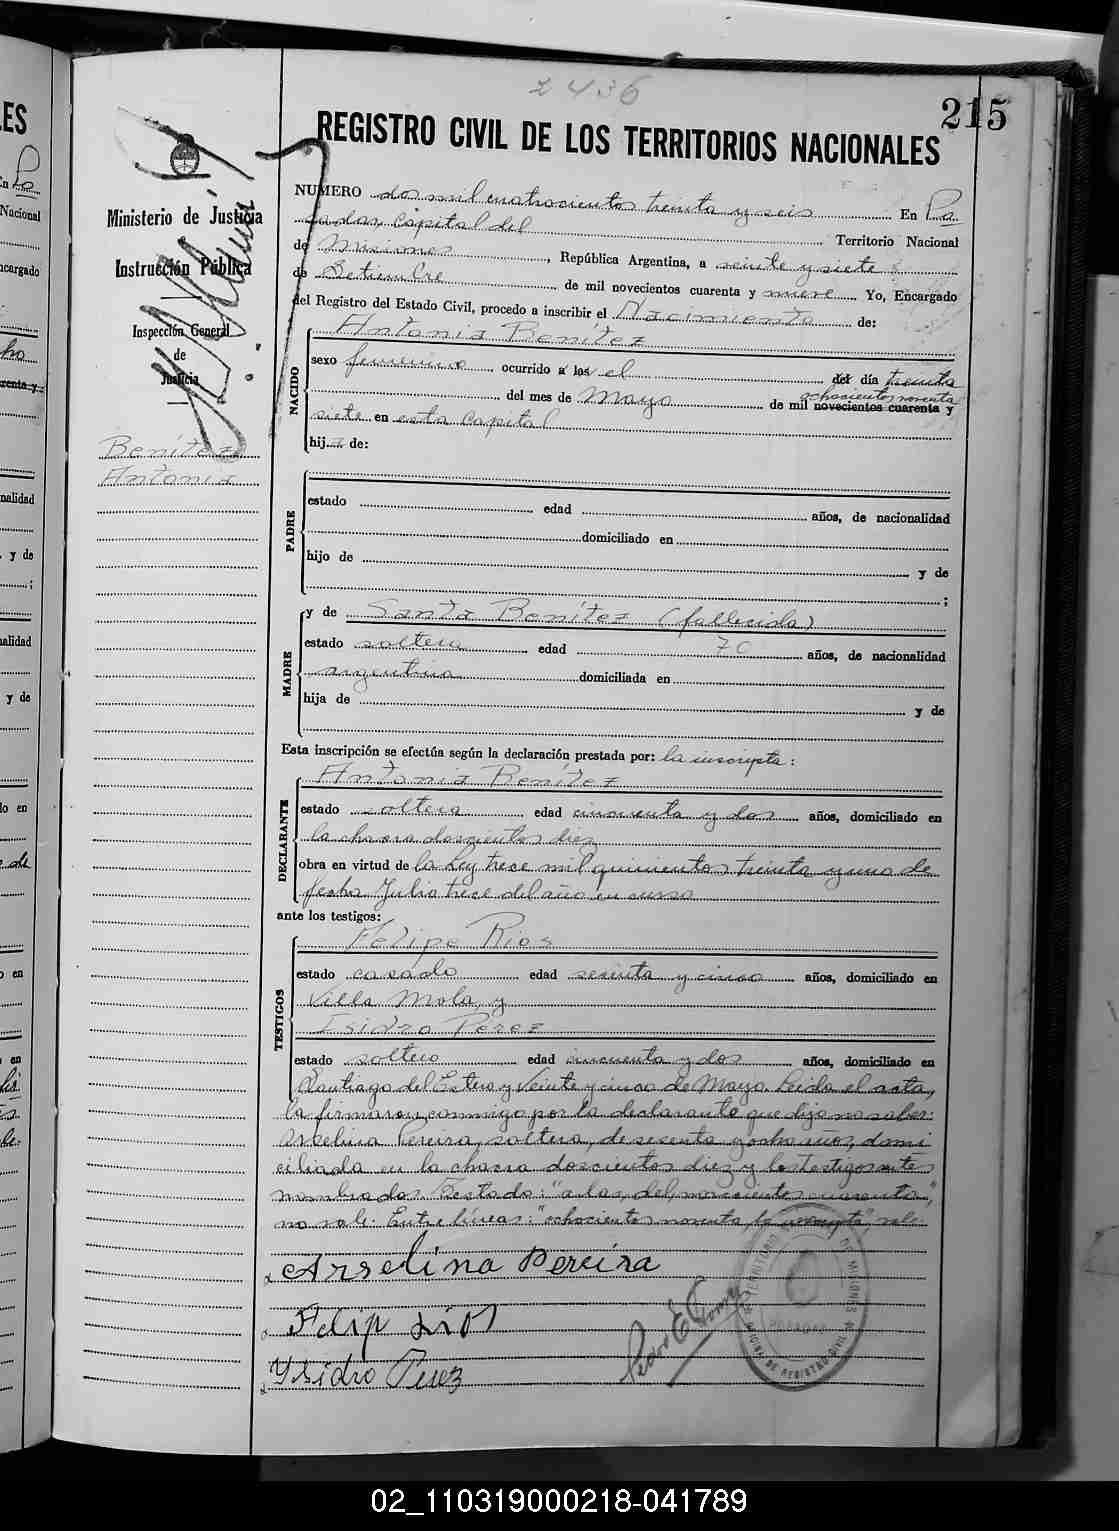 2436
215
REGISTRO CIVIL DE LOS TERRITORIOS NACIONALES
Ministerio de Justicia
Instrucción Pública
Inspección General
de
Justicia
Benítez
Antonia
NUMERO dos mil cuatrocientos treinta y seis En Po
sadas, capital del Territorio Nacional
de Misiones, República Argentina, a veinte y siete
de Setiembre de mil novecientos cuarenta y nueve. Yo, Encargado
del Registro del Estado Civil, procedo a inscribir el Nacimiento de:
NACIDO
Antonia Benítez
sexo femenino ocurrido a los el del día treinta
ochocientos noventa
del mes de Mayo de mil novecientos cuarenta y
siete en esta capital
hija de:
PADRE
estado edad años, de nacionalidad
domiciliado en
hijo de y de
;
MADRE
y de Santa Benítez (fallecida)
estado soltera edad 70 años, de nacionalidad
argentina domiciliada en
hija de y de
Esta inscripción se efectúa según la declaración prestada por: la inscripta:
DECLARANTE
Antonia Benítez
estado soltera edad cincuenta y dos años, domiciliado en
la chacra doscientos diez
obra en virtud de la Ley trece mil quinientos treinta y uno de
fecha Julio trece del año en curso
ante los testigos:
TESTIGOS
Felipe Rios
estado casado edad sesenta y cinco años, domiciliado en
Villa Mola, y
Isidro Perez
estado soltero edad cincuenta y dos años, domiciliado en
Santiago del Estero y Veinte y cinco de Mayo. Leida el acta,
la firmaron conmigo por la declarante que dijo no saber:
Arselina Pereira, soltera, de sesenta y ocho años, domi
ciliada en la chacra doscientos diez y los testigos antes
nombrados. Testado: "a los, del, novecientos cuarenta,"
no vale. Entre líneas: "ochocientos noventa, la inscripta" vale.
Arselina Pereira
Felip Rios
Ysidro Perez
TERRITORIO DE MISIONES
POSADAS
OFICINA DE REGISTRO CIVIL
02_110319000218-041789